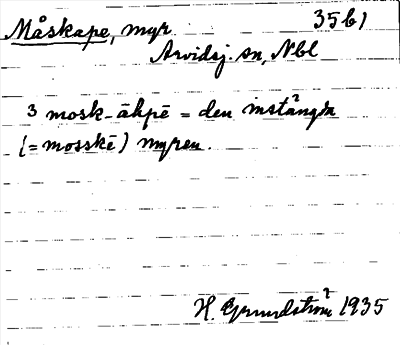 Måskape, myr 35b1
Arvidsj. sn, Nbl
3 mosk-āhpē = den instängda
(= mosskē) myren.
H. Grundström 1935